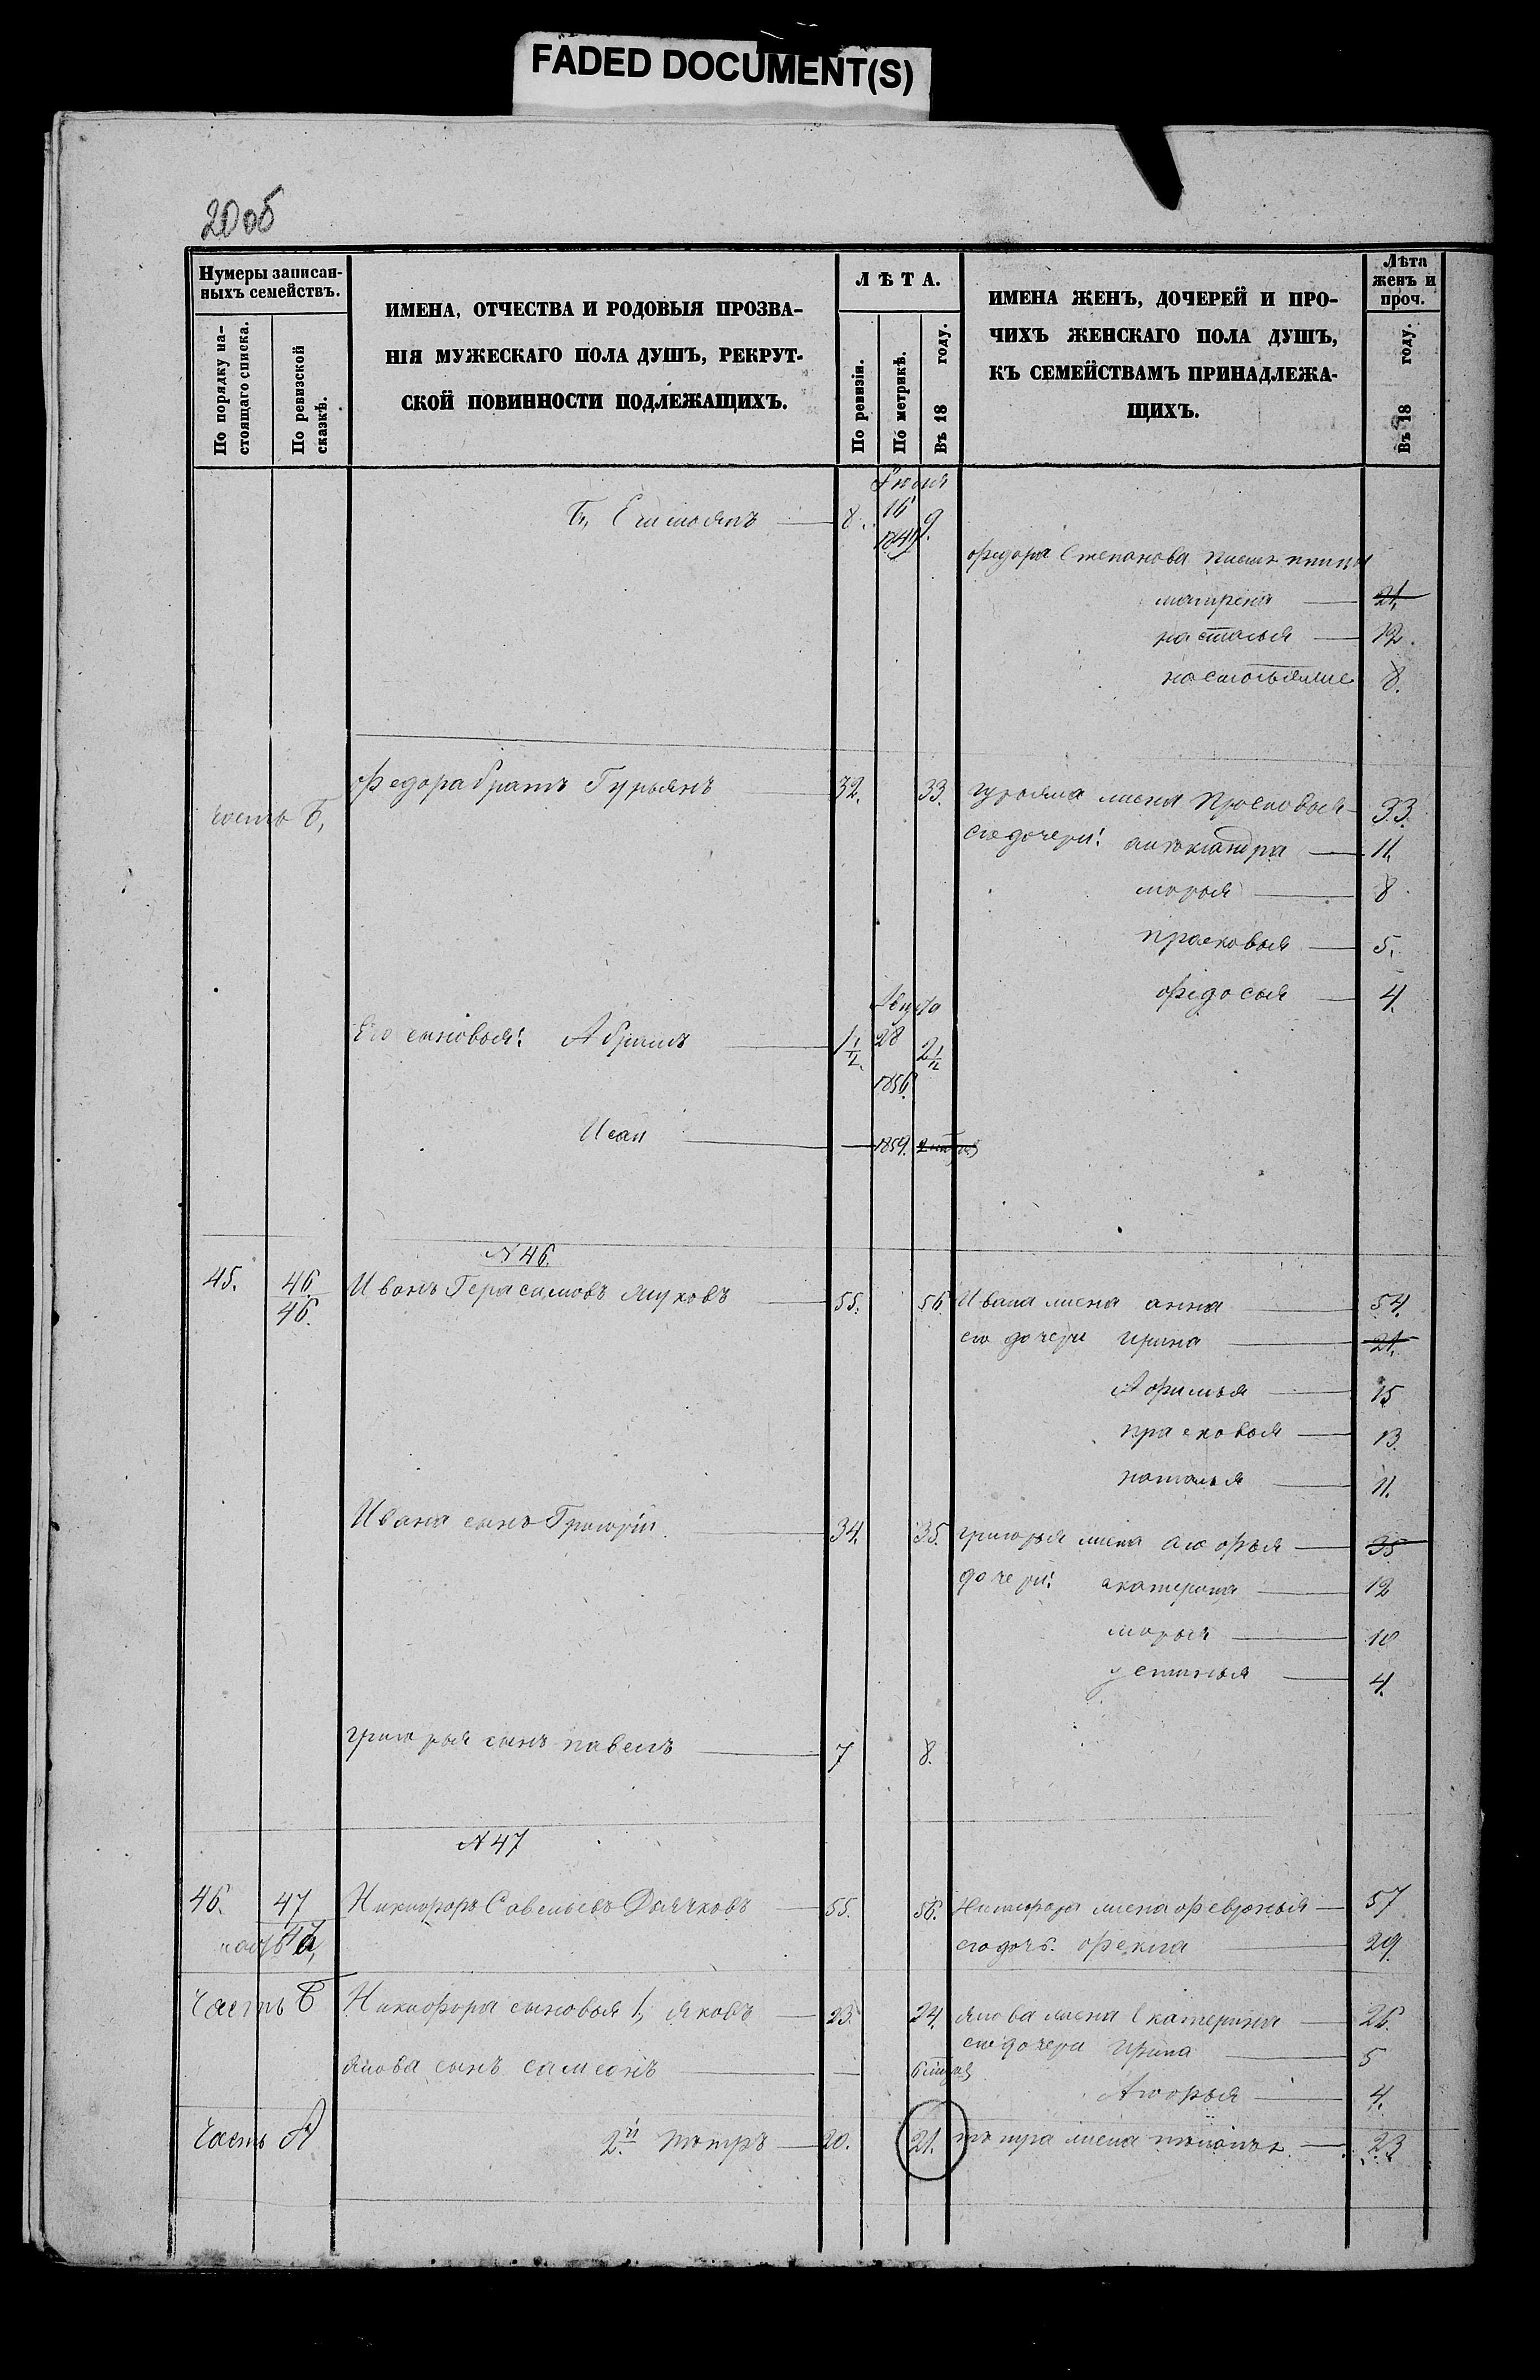 FADED DOCUMENT(S)
20об
Нумеры записан-
ныхъ семействъ.
По порядку на-
стоящаго списка.
По ревизской
сказкѣ.
ИМЕНА, ОТЧЕСТВА И РОДОВЫЯ ПРОЗВА-
НІЯ МУЖЕСКАГО ПОЛА ДУШЪ, РЕКРУТ-
СКОЙ ПОВИННОСТИ ПОДЛЕЖАЩИХЪ.
ЛѢТА.
По ревизіи.
По метрикѣ.
Въ 18 году.
ИМЕНА ЖЕНЪ, ДОЧЕРЕЙ И ПРО-
ЧИХЪ ЖЕНСКАГО ПОЛА ДУШЪ,
КЪ СЕМЕЙСТВАМЪ ПРИНАДЛЕЖА-
ЩИХЪ.
Лѣта
женъ и
проч.
Въ 18 году.
8. 16 9.
федора Степанова
матрена 21.
наталья 12.
8.
часть Б,
федора братъ Гурьянъ 32. 33. гурьяна жена Просковья 33.
его дочери: 11.
марья 8
прасковья 5.
федосья 4.
Августа
Его сыновья: Абрамъ 1½ 28 2½
1856.
Исаи 1859.
N 46.
45. 46 Иванъ Герасимовъ 55. 56 Ивана жена анна 54.
46.
его дочери ирина 21.
Афимья 15
прасковья 13.
наталья 11.
Ивана сынъ Григорій 34. 35. григорья жена 35
дочери: акатерина 12
марья 10
устинья 4.
григорья сынъ павелъ 7 8.
N 47
46. 47 Никифоръ Савельевъ Дьячковъ 55. 56. Никифора жена февронья 57
47
его дочь фекла 29.
Часть Б Никифора сыновья 1, яковъ 23. 24. якова жена Екатерина 26.
его дочери Ирина 5
якова сынъ самсонъ
4.
Часть А 2й петръ 20. 21. петра жена 23